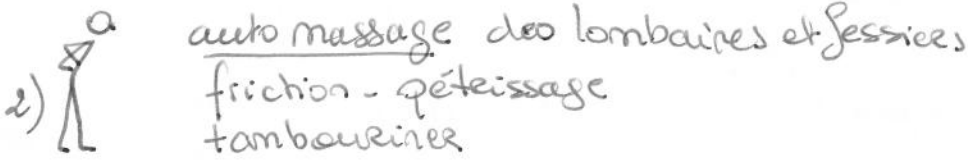 auto massage des lombaires et fessiers
friction - pétrissage
2)
tambouriner